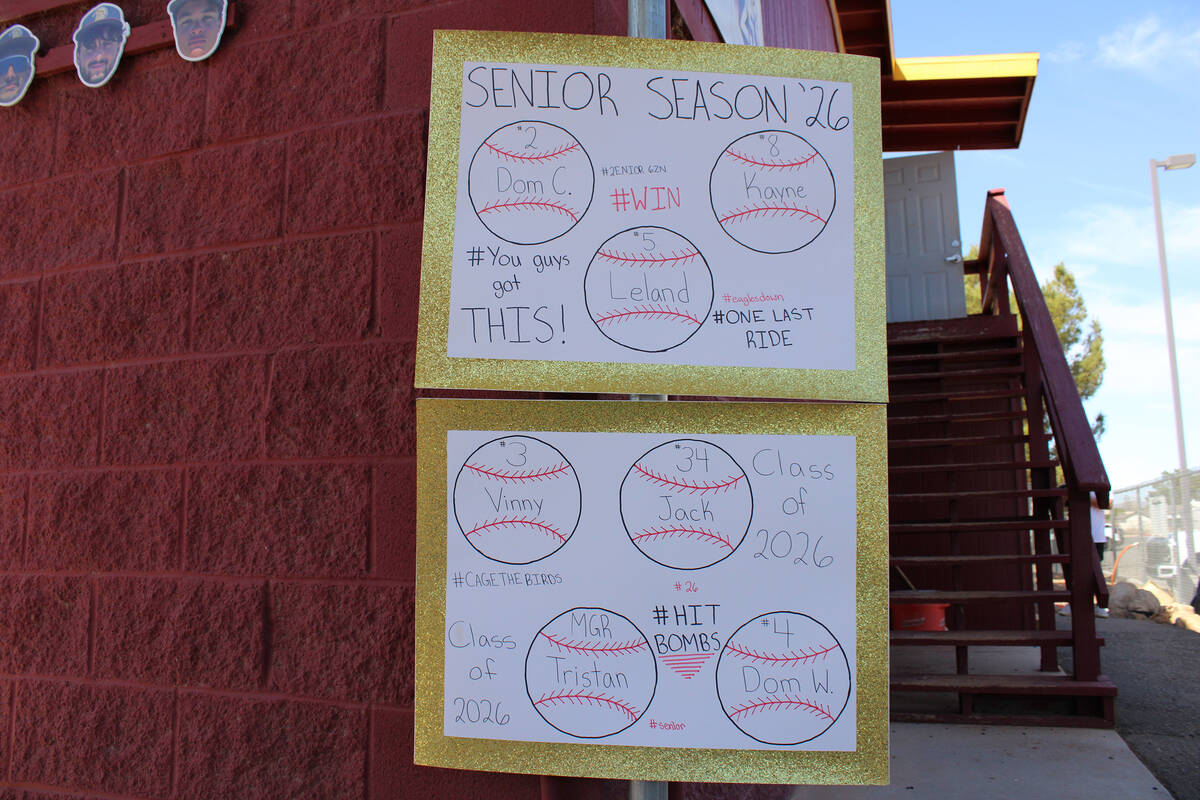 SENIOR SEASON '26
#2
Dom C.
#2ENIOR 62N
#WIN
#8
Kayne
#You guys
got
THIS!
#5
Leland
#eaglesdown
#ONE LAST
RIDE
#3
Vinny
#34
Jack
Class
of
2026
#CAGETHEBIRDS
#26
Class
of
2026
MGR
Tristan
#HIT
BOMBS
#senior
#4
Dom W.